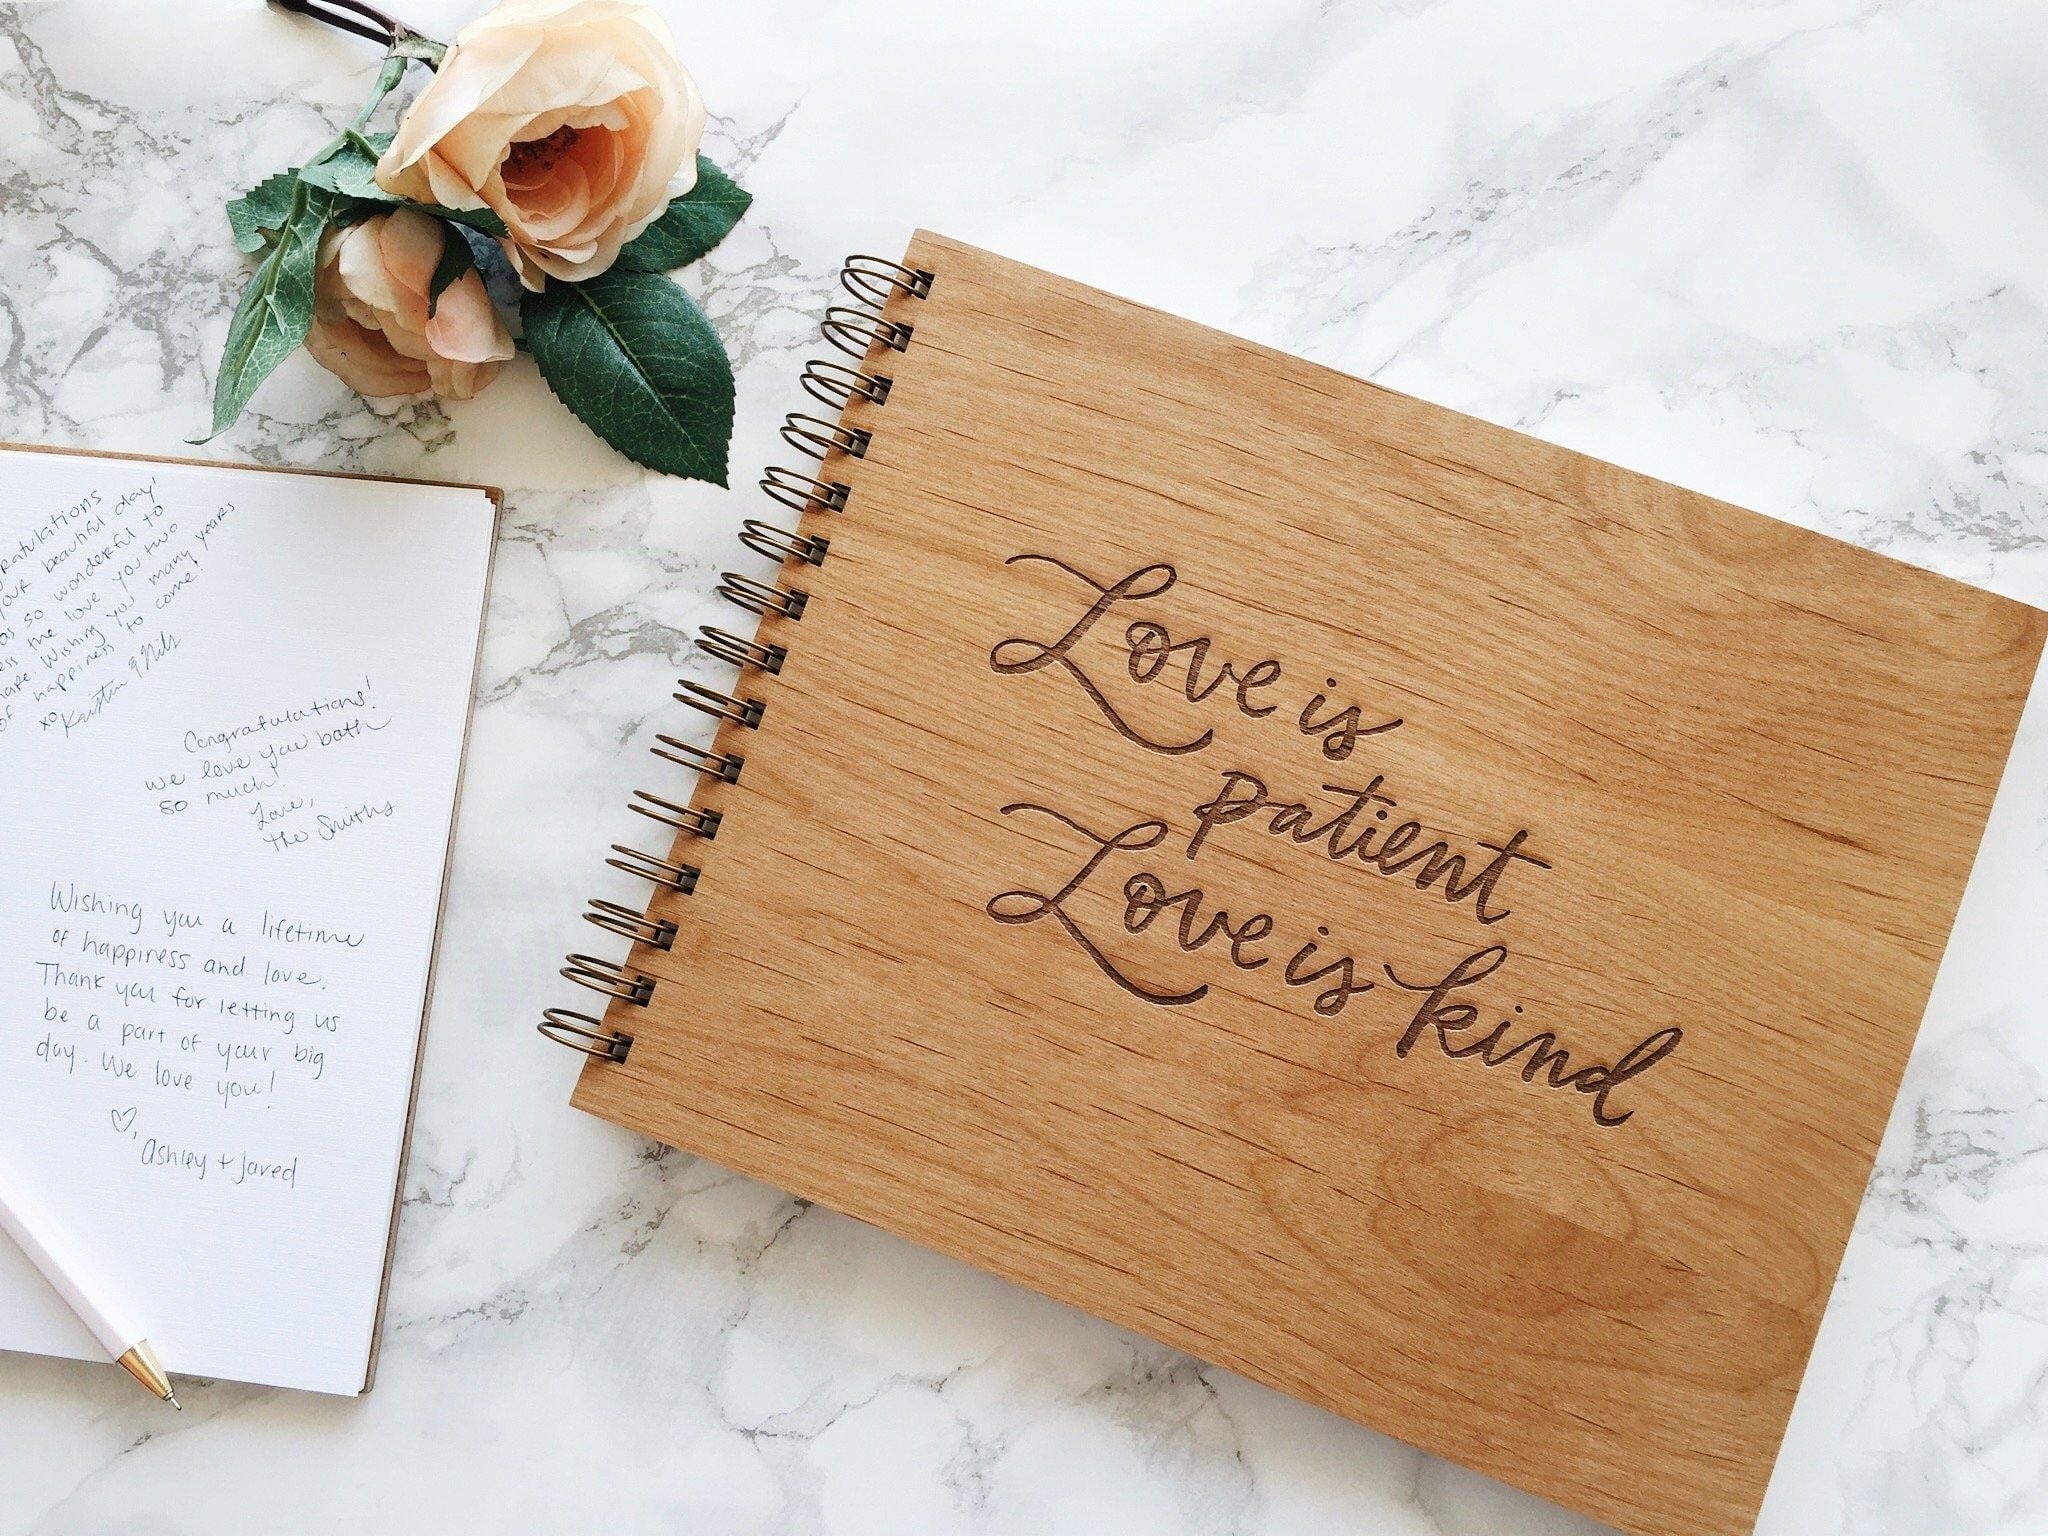 your beautiful day!
so wonderful to
the love you two
Wishing you many years
of happiness to come!
xo
Congratulations!
We love you both
so much!
Love,
the Smiths
Wishing you a lifetime
of happiness and love.
Thank you for letting us
be a part of your big
day. We love you!
♡,
Ashley + Jared
Love is
patient
Love is kind